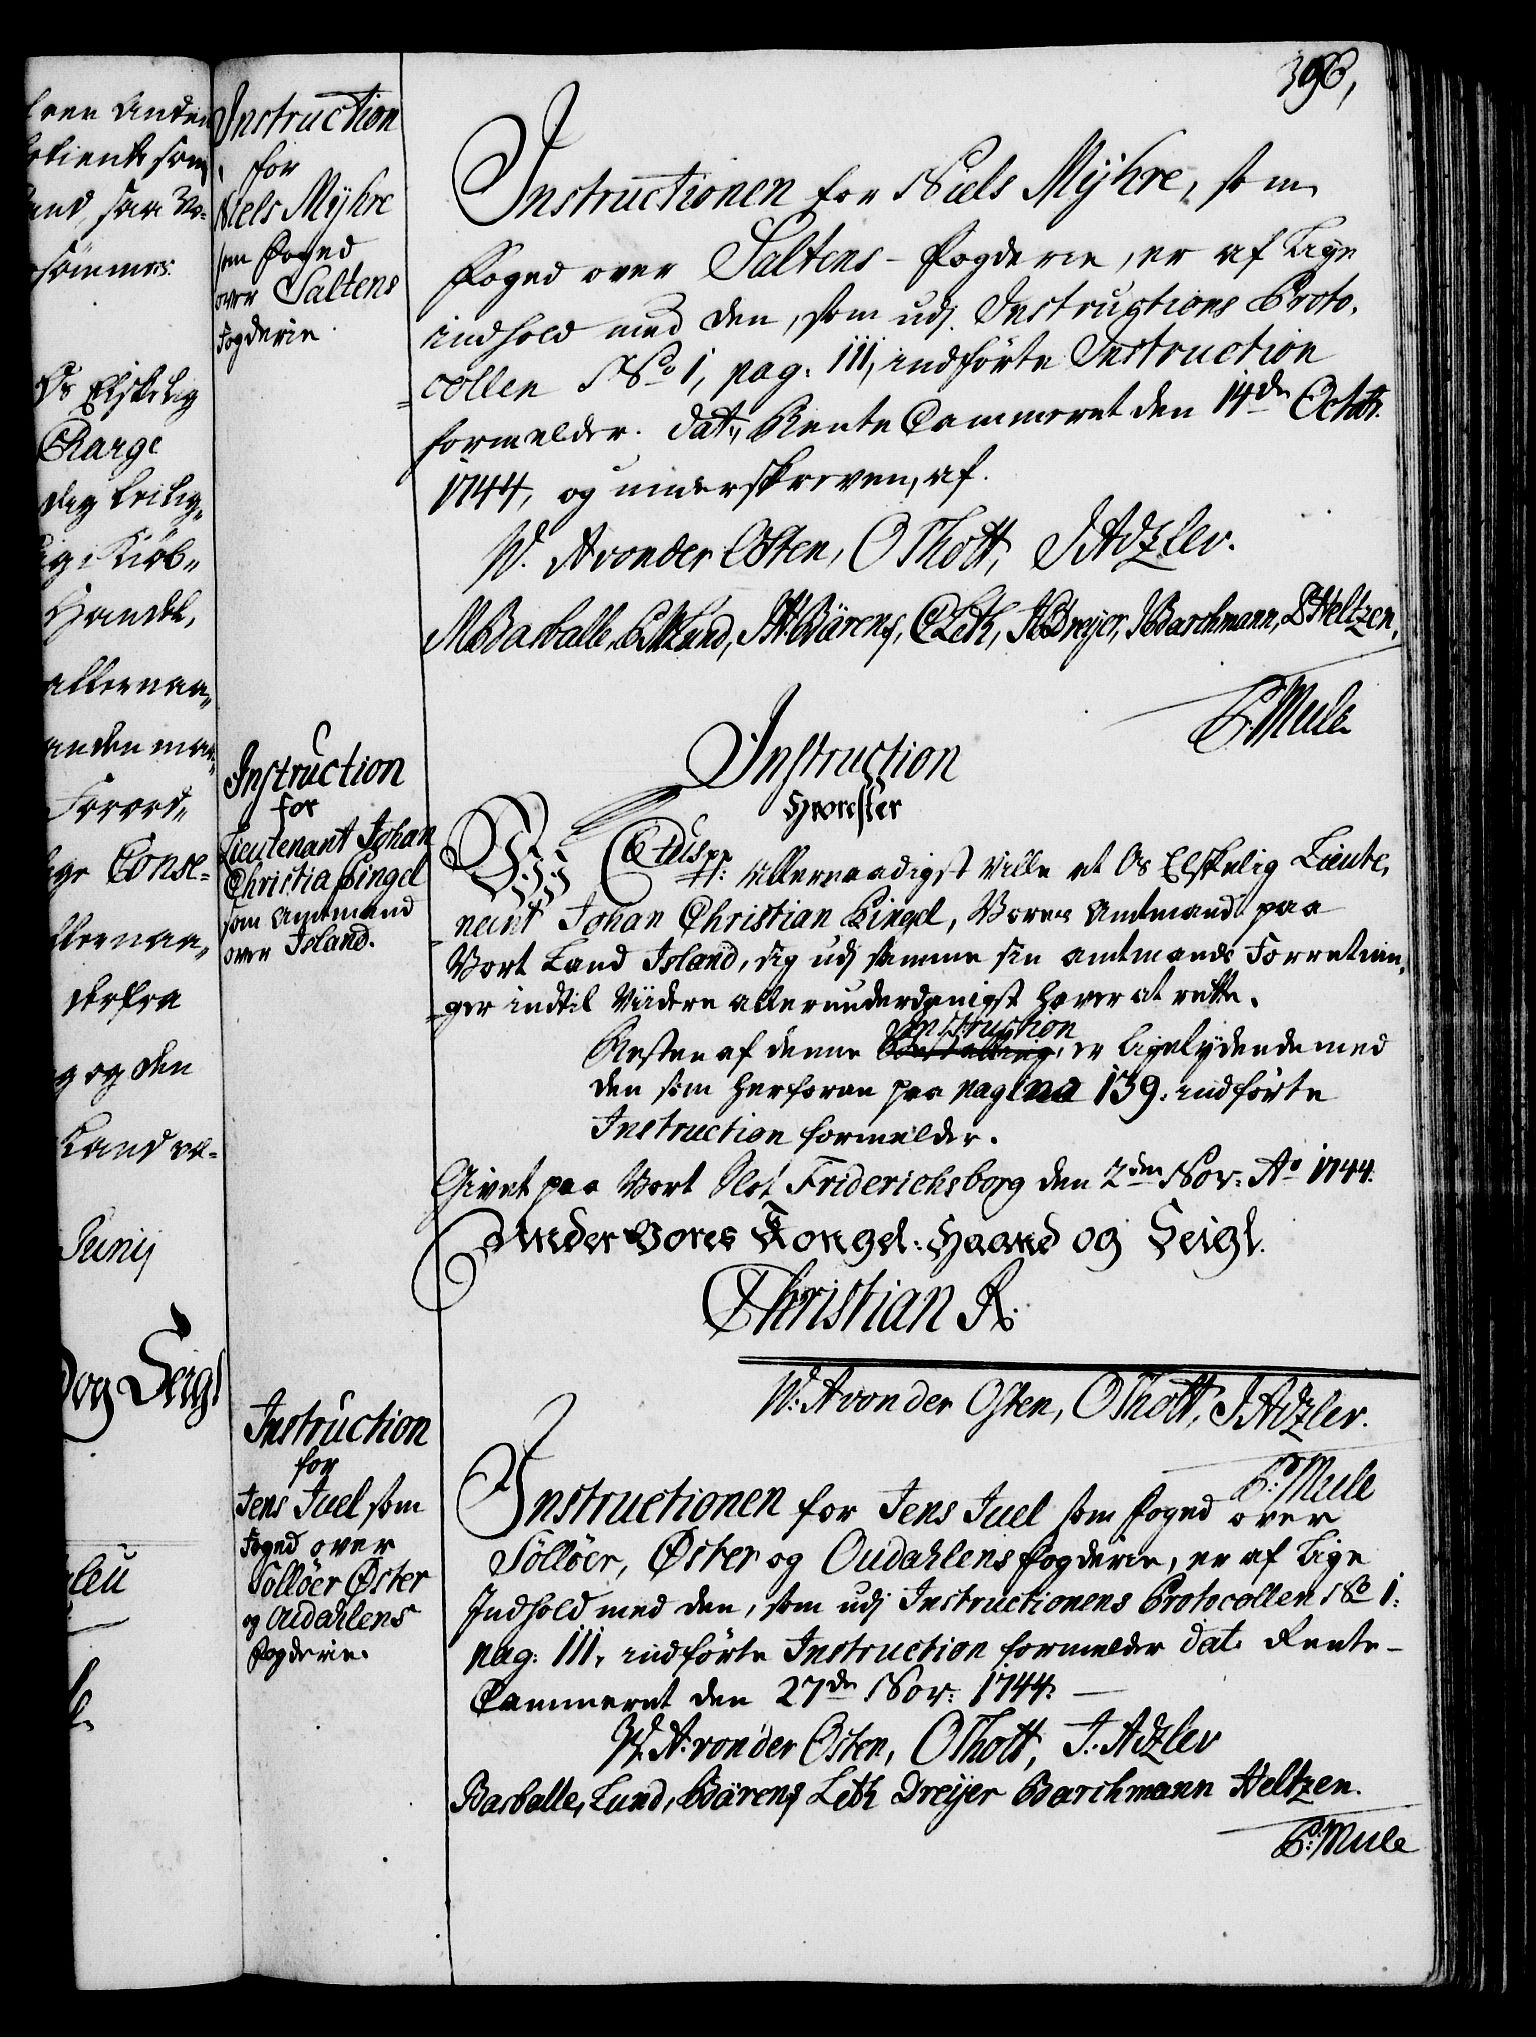 396,
Instruction
for
Niels Mÿhre
som Foged
over Saltens
Fogderie
Instructionen for Niels Mÿhre, som
Foged over Saltens-Fogderie, er af Lige
indhold med den, som udj Instructions Proto-
collen No 1, pag: 111, indförte Instruction
formelder. dat: Rente Cammeret den 14de Octob:
1744, og underskreven, af.
W. A von der Osten, O Thott, J Adzlev.
M Basballe, Lund, Bärens, C Leth, Dreyer, Barchmann, Heltzen,
P: Mule
Instruction
for
Lieutenant Johan
Christia Pingel
som Amtmand
over Island.
Instruction
Hvorefter
Vi C 6tus pp: Allernaadigst Ville at Os Elskelig Lieute-
nant Johan Christian Pingel, Vores Amtmand paa
Vort Land Island, sig udj samme sin Amtmands Forretnin-
ger indtil Viidere allerunderdanigst haver at rette.
Instruction
Resten af denne Bestalling, er ligelÿdende med
den som herforan paa pagina 139. indförte
Instruction formelder.
Givet paa Vort Slot Friderichsborg den 2den Nov: Ao 1744.
Under Vores Kongel: Haand og Seigl.
Christian R.
W: A von der Osten, O Thott, J Adzlev.
P: Mule
Instruction
for
Jens Juel som
Foged over
Solløer Øster
og Oudahlens
Fogderie.
Instructionen for Jens Juel som Foged over
Solløer, Øster og Oudahlens Fogderie, er af Lige
Indhold med den, som udj Instructionens Protocollen No 1:
pag: 111, indförte Instruction formelder dat: Rente-
Cammeret den 27de Nov: 1744.
W. A: von der Osten, O Thott, J: Adzlev
Basballe, Lund, Bärens Leth Dreÿer Barchmann Heltzen.
P: Mule